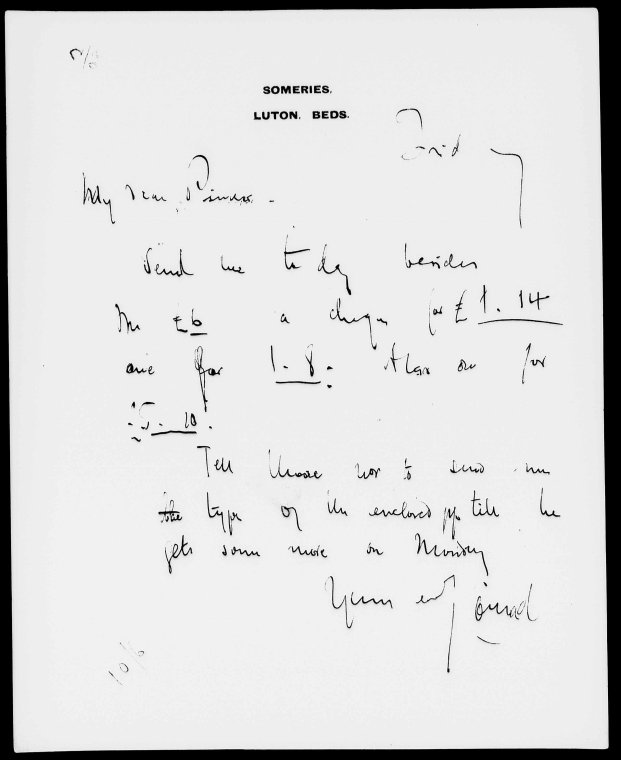 5/6
SOMERIES.
LUTON. BEDS.
Friday
My dear Pinker.
Send me to day besides
the £6 a cheque for £1.14
one for 1.8. Also one for
5.10.
Tell those not to send me
the type of the enclosed pp. till he
gets some more on Monday
Yours ever
Conrad
10/6